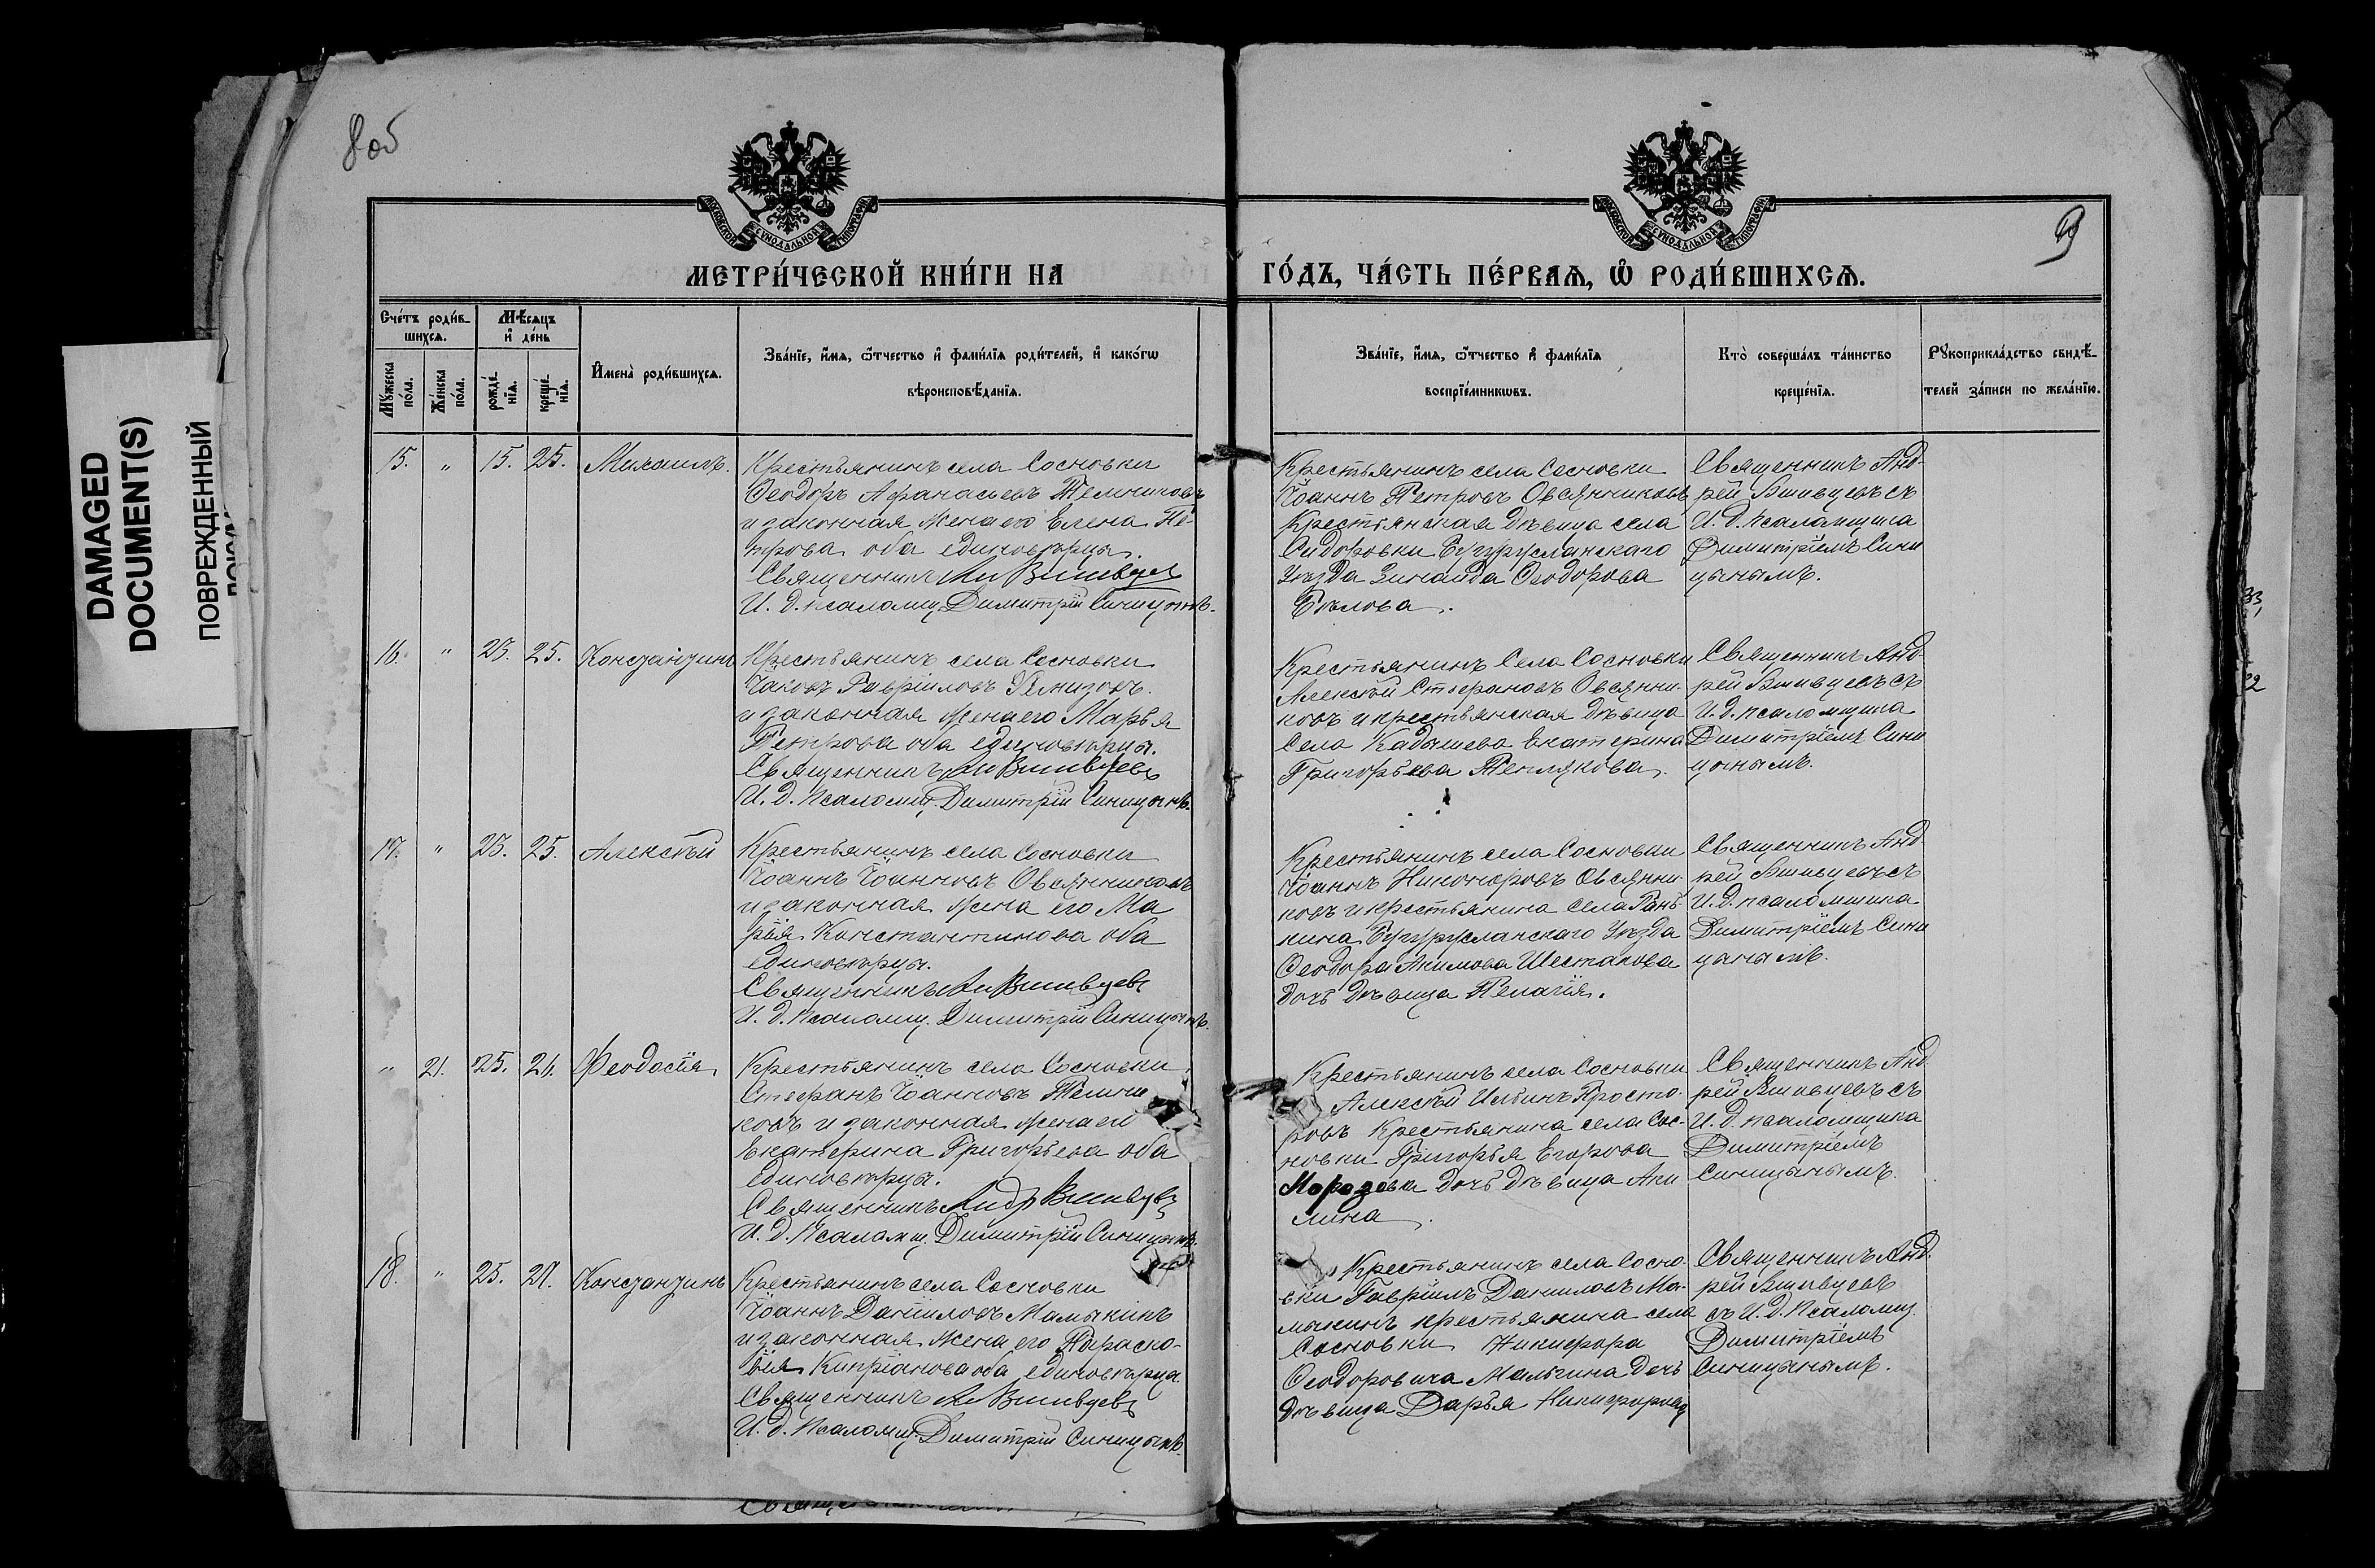 8 об
9
DAMAGED
DOCUMENT(S)
ПОВРЕЖДЕННЫЙ
МЕТРИ́ЧЕСКОЙ КНИ́ГИ НА
ГО́ДЪ, ЧА́СТЬ ПЕ́РВАѦ, Ѡ҆ РОДИ́ВШИХСѦ.
Сче́тъ роди́в-
шихсѧ.
Мѣ́сѧцъ
и҆ де́нь
Мꙋ́жеска
по́ла.
Же́нска
по́ла.
рожде́-
нїѧ.
креще́-
нїѧ.
И҆мена̀ роди́вшихсѧ.
Зва́нїе, и҆́мѧ, ѻ҆́тчество и҆ фами́лїѧ роди́телей, и҆ како́гѡ
вѣроисповѣ́данїѧ.
Зва́нїе, и҆́мѧ, ѻ҆́тчество и҆ фами́лїѧ
воспрїе́мникѡвъ.
Кто̀ соверша́лъ та́инство
креще́нїѧ.
Рꙋкоприкла́дство свидѣ́-
телей за́писи по жела́нїю.
15. " 15. 25. Михаилъ.
Крестьянинъ села Сосновки
Ѳеодоръ Афанасьевъ Тельниковъ
и законная жена его Елена Пе-
трова оба единоверцы.
Священникъ
И. д. псаломщ. Димитрій Синицынъ.
Крестьянинъ села Сосновки
Іоаннъ Петровъ Овсянниковъ
Крестьянская дѣвица села
Сидоровки Бугурусланскаго
уѣзда Зинаида Ѳеодорова
Бѣлова.
Священникъ Анд-
рей Вшивцевъ съ
И. д. псаломщика
Димитріемъ Сини
цынымъ.
16. " 23. 25. Константинъ
Крестьянинъ села Сосновки
Іаковъ Гавріиловъ Ремизовъ.
и законная жена его Марья
Петрова оба единовѣрцы.
Священникъ Ан Вшивцевъ
И. д. Псаломщ. Димитрій Синицынъ.
Крестьянинъ Села Сосновки
Алексѣй Стефановъ Овсянни-
ковъ и крестьянская дѣвица
Села Кабышева Екатерина
Григорьева Теплякова.
Священникъ Анд-
рей Вшивцевъ съ
И. д. псаломщика
Димитріемъ Сини
цынымъ.
17. " 23. 25. Алексѣй
Крестьянинъ села Сосновки
Іоаннъ Іоанновъ Овсянниковъ
и законная жена его Ма
рія Константинова оба
единовѣрцы.
Священникъ Ан Вшивцевъ
И. д. Псаломщ. Димитрій Синицынъ.
Крестьянинъ села Сосновки
Іоаннъ Никоноровъ Овсянни-
ковъ и крестьянина села
кина Бугурусланскаго уѣзда
Ѳеодора Акимова Шестакова
дочь дѣвица Пелагія.
Священникъ Анд-
рей Вшивцевъ съ
И. д. псаломщика
Димитріемъ Сини
цынымъ.
" 21. 25. 26. Ѳеодосія
Крестьянинъ села Сосновки
Стефанъ Іоанновъ Тельни
ковъ и законная жена его
Екатерина Григорьева оба
единовѣрцы.
Священникъ Андр Вшивцевъ
И. д. Псаломщ. Димитрій Синицынъ.
Крестьянинъ села Сосновки
Алексѣй Ильинъ
ровъ Крестьянина села Сос-
новки Григорья Егорова
Морозова дочь дѣвица Аки
лина.
Священникъ Анд
рей Вшивцевъ съ
И. д. псаломщика
Димитріемъ
Синицынымъ.
18. " 25. 27. Константинъ
Крестьянинъ села Сосновки
Іоаннъ Даніиловъ Мамыкинъ
и законная жена его Параско-
вія Кипріанова оба единовѣрца.
Священникъ Ан Вшивцевъ
И. д. Псаломщ. Димитрій Синицынъ.
Крестьянинъ села Сосно-
вки Гавріилъ Даниловъ Ма-
мыкинъ крестьянина села
Сосновки Никифора
Ѳеодоровича Дочь
дѣвица Дарья
Священникъ Анд-
рей Вшивцевъ
съ И. д. Псаломщ.
Димитріемъ
Синицынымъ.